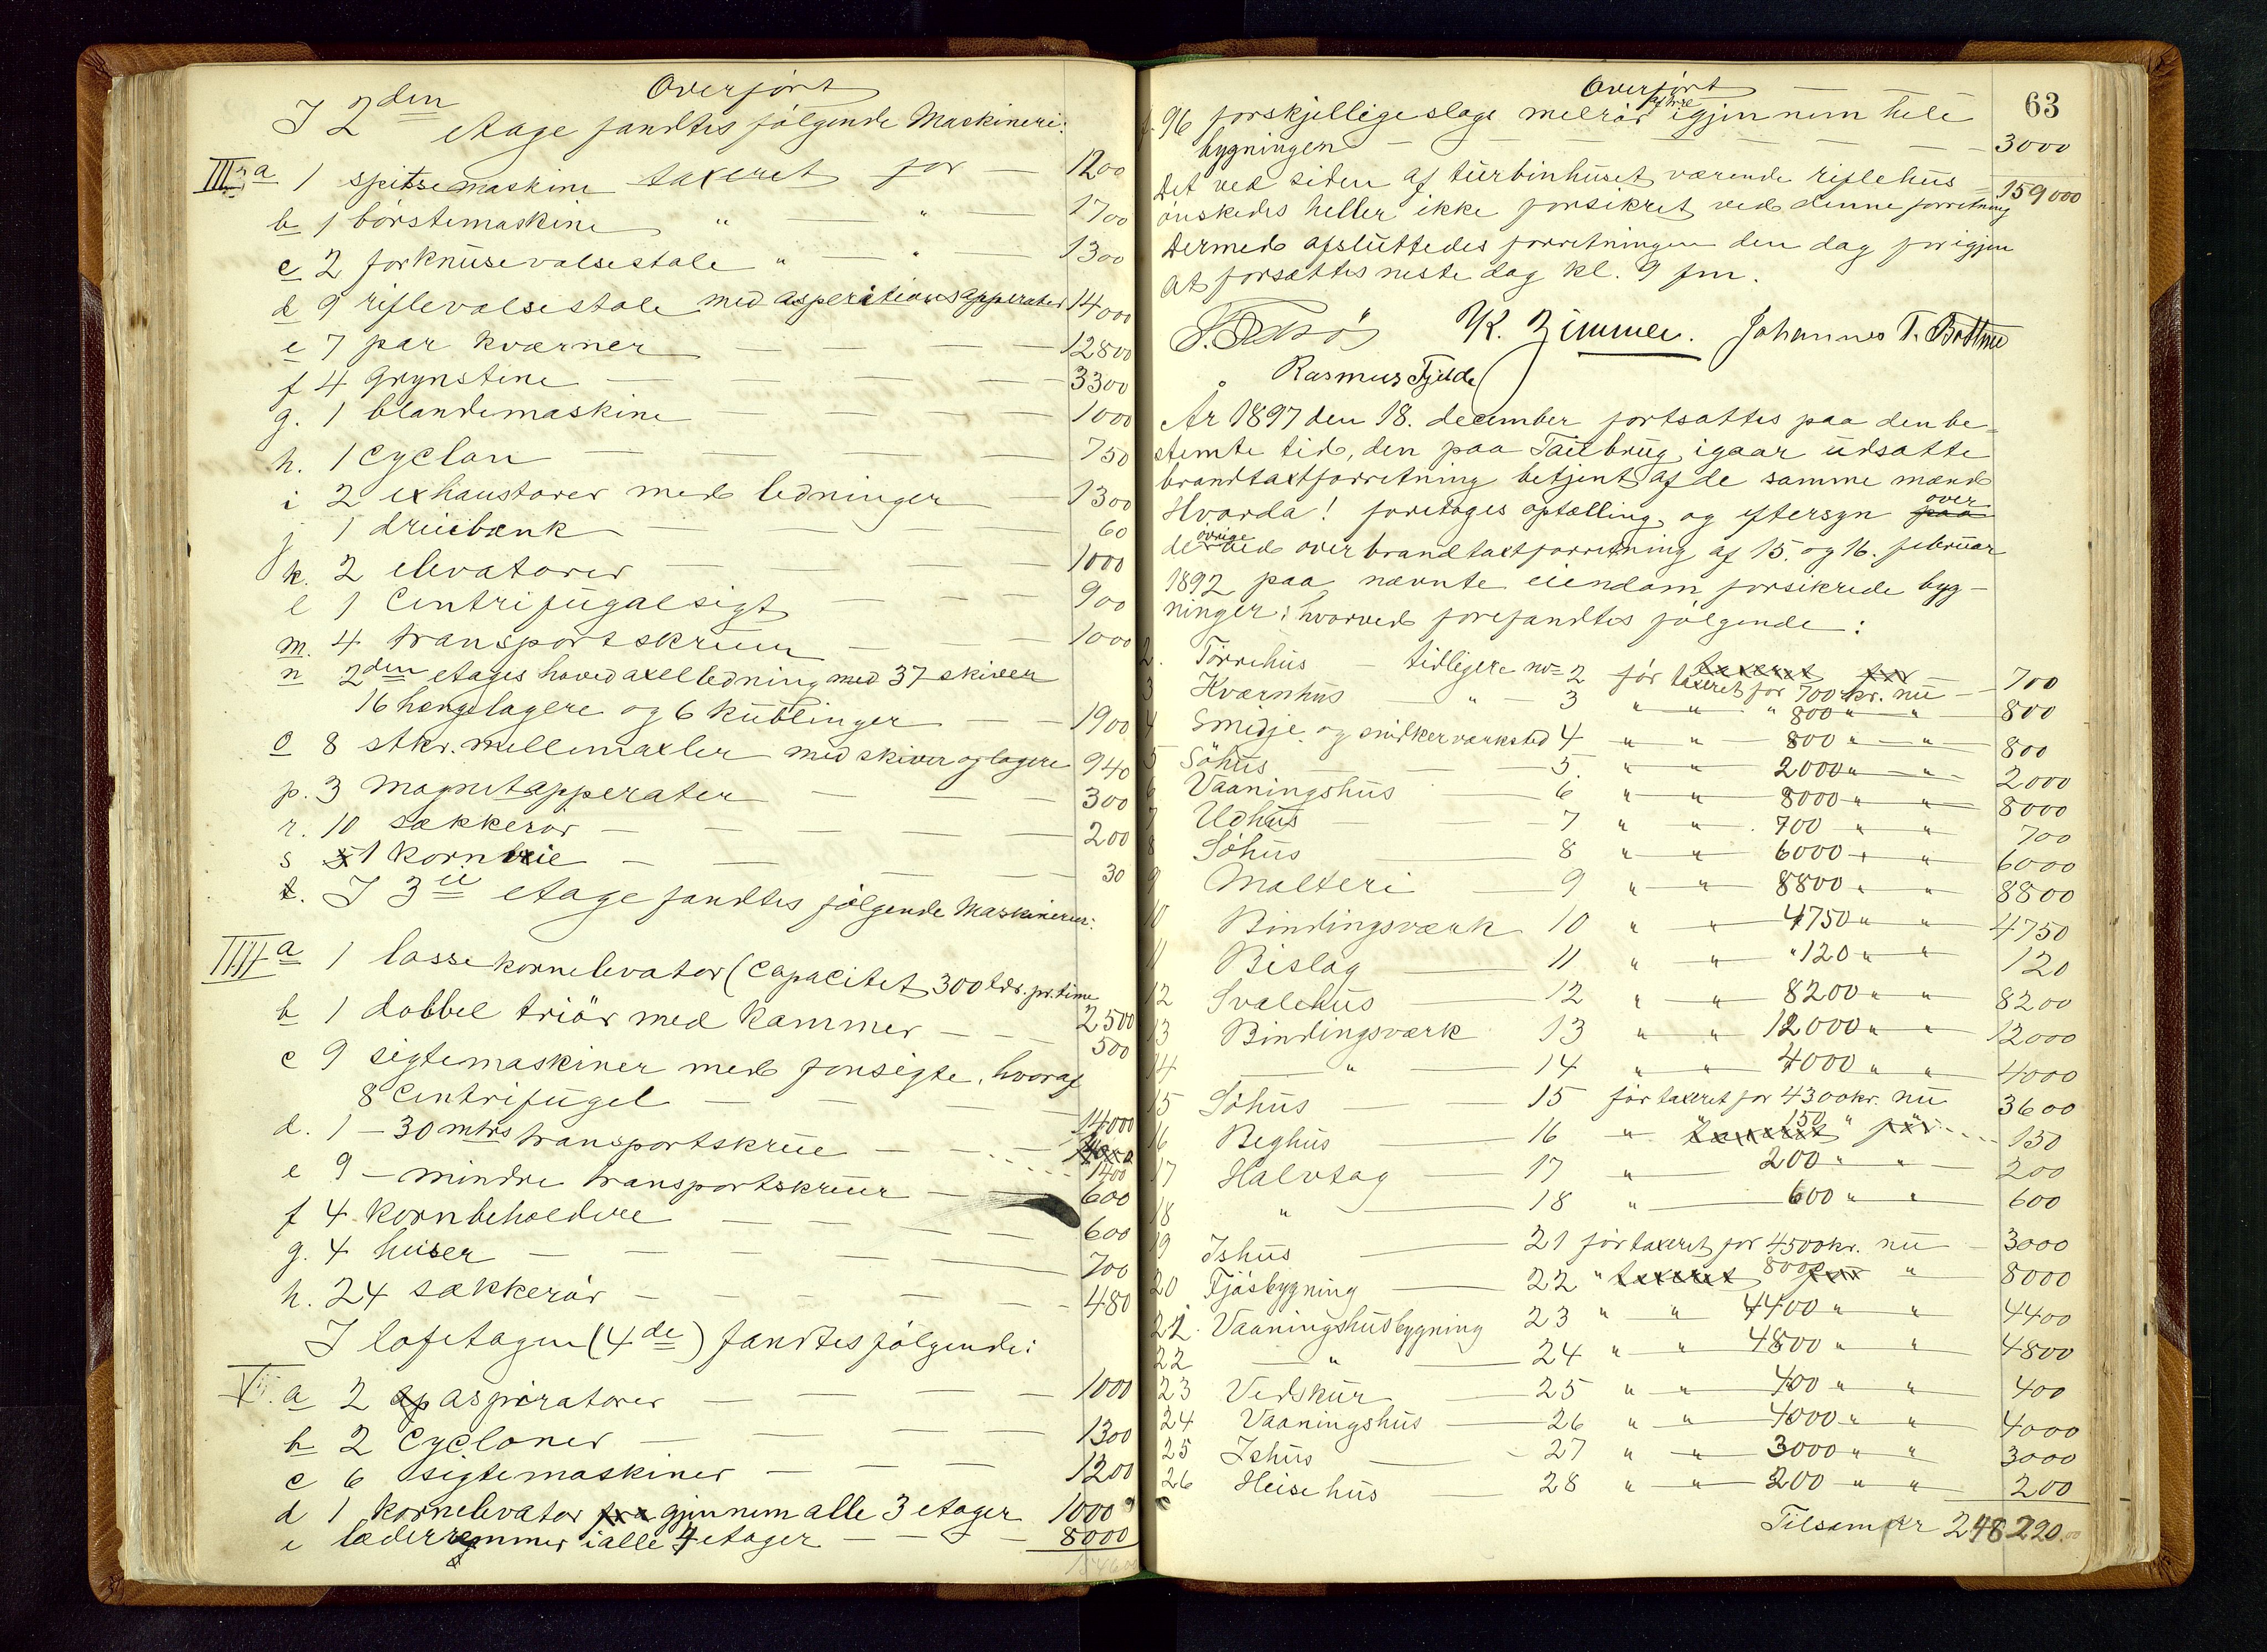 Overført
I 2den etage fandtes følgende Maskineri:
III a 1 spitsemaskine taxeret for — 1200
b 1 børstemaskine " — " — 1700
c 2 forknusevalsestole " — " — 1300
d 9 riflevalsestole med asperitionsapperater 14000
e 7 par kværner — 12800
f 4 grynstene — 3300
g. 1 blandemaskine — 1000
h. 1 Cyclon — 750
i 2 exhaustorer med ledninger — 1300
j 1 dreiebænk — 60
k. 2 elevatorer — 1000
l 1 Centrifugalsigt — 900
m. 4 transportskruer — 1000
n 2den etages hovedaxelledning med 37 skiver
16 hængelagere og 6 kublinger — 1900
o 8 stkr. mellemaxler med skiver og lagere 940
p. 3 magnetapperater — 300
r. 10 sækkerør — 200
s 1 kornvæie — 30
t. I 3die etage fandtes følgende Maskinerier:
IIII a 1 lossekornelevator (Capacitet 300 tdr. pr. time
2500
b 1 dobbel triør med kammer — 500
c 9 sigtemaskiner med forsigte, hvoraf
8 Centrifugel — 14000
d. 1 – 30 mtrs transportskrue — 1400
e 9 – mindre transportskruer — 600
f 4 kornbeholdere — 600
g. 4 heiser — 700
h. 24 sækkerør — 480
I loftetagen (4de) fandtes følgende:
V. a 2 aspiratorer — 1000
b 2 Cycloner — 1300
c 6 sigtemaskiner — 1200
d 1 kornelevator fra gjennem alle 3 etager 1000
e læderremmer i alle 4 etager — 8000
Overført
63
f. 96 forskjelligeslags melrør igjennem hele
bygningen — 3000
Det ved siden af turbinhuset værende riflehus 159000
ønskedes heller ikke forsikret ved denne forretning
Dermed afsluttedes forretningen den dag for igjen
at forsættes neste dag kl. 9 fm.
K. Zimmer. Johannes T.
Rasmus Fjelde
År 1897 den 18. december fortsattes paa den be=
stemte tid, den paa igaar udsatte
brandtaxtforretning betjent af de samme mænd
Hvorda! foretages optælling og eftersyn paa over
de øvrige ved overbrandtaxtforretning af 15. og 16. februar
1892 paa nævnte eiendom forsikrede byg-
ninger: hvorved forefandtes følgende:
2. Tørrehus — tidligere no= 2 før taxeret for 700 kr. nu — 700
3 Kværnhus " — 3 " " " 800 " " 800
4 Smidje og snidkerværksted 4 " " 800 " " 800
5 Søhus — 5. " " 2000 " " 2000
6 Vaaningshus — 6 " " 8000 " " 8000
7 Udhus — 7 " " 700 " " 700
8 Søhus — 8 " " 6000 " " 6000
9 Malteri — 9 " " 8800 " " 8800
10 Bindingsværk 10 " " 4750 " " 4750
11 Bislag — 11 " " " 120 " " 120
12 Svalehus — 12 " " 8200 " " 8200
13 Bindingsværk 13 " " 12000 " " 12000
14 — " — 14 " " 4000 " " 4000
15 Søhus — 15 før taxeret for 4300 kr. nu 3600
16 Beghus — 16 " " 150 " 150
17 Halvtag — 17 " 200 " " 200
18 " — 18 " 600 " " 600
19 Ishus — 21 før taxeret for 4500 kr. nu — 3000
20 Fjøsbygning — 22 " 8000 " 8000
21. Vaaningshusbygning 23 " " 4400 " " 4400
22 — " — 24 " " 4800 " " 4800
23 Vedskur — 25 " " 400 " " 400
24 Vaaningshus — 26 " " 4000 " " 4000
25 Ishus — 27 " " 3000 " " 3000
26 Heisehus — 28 " " 200 " " 200
Tilsam kr 248220.00